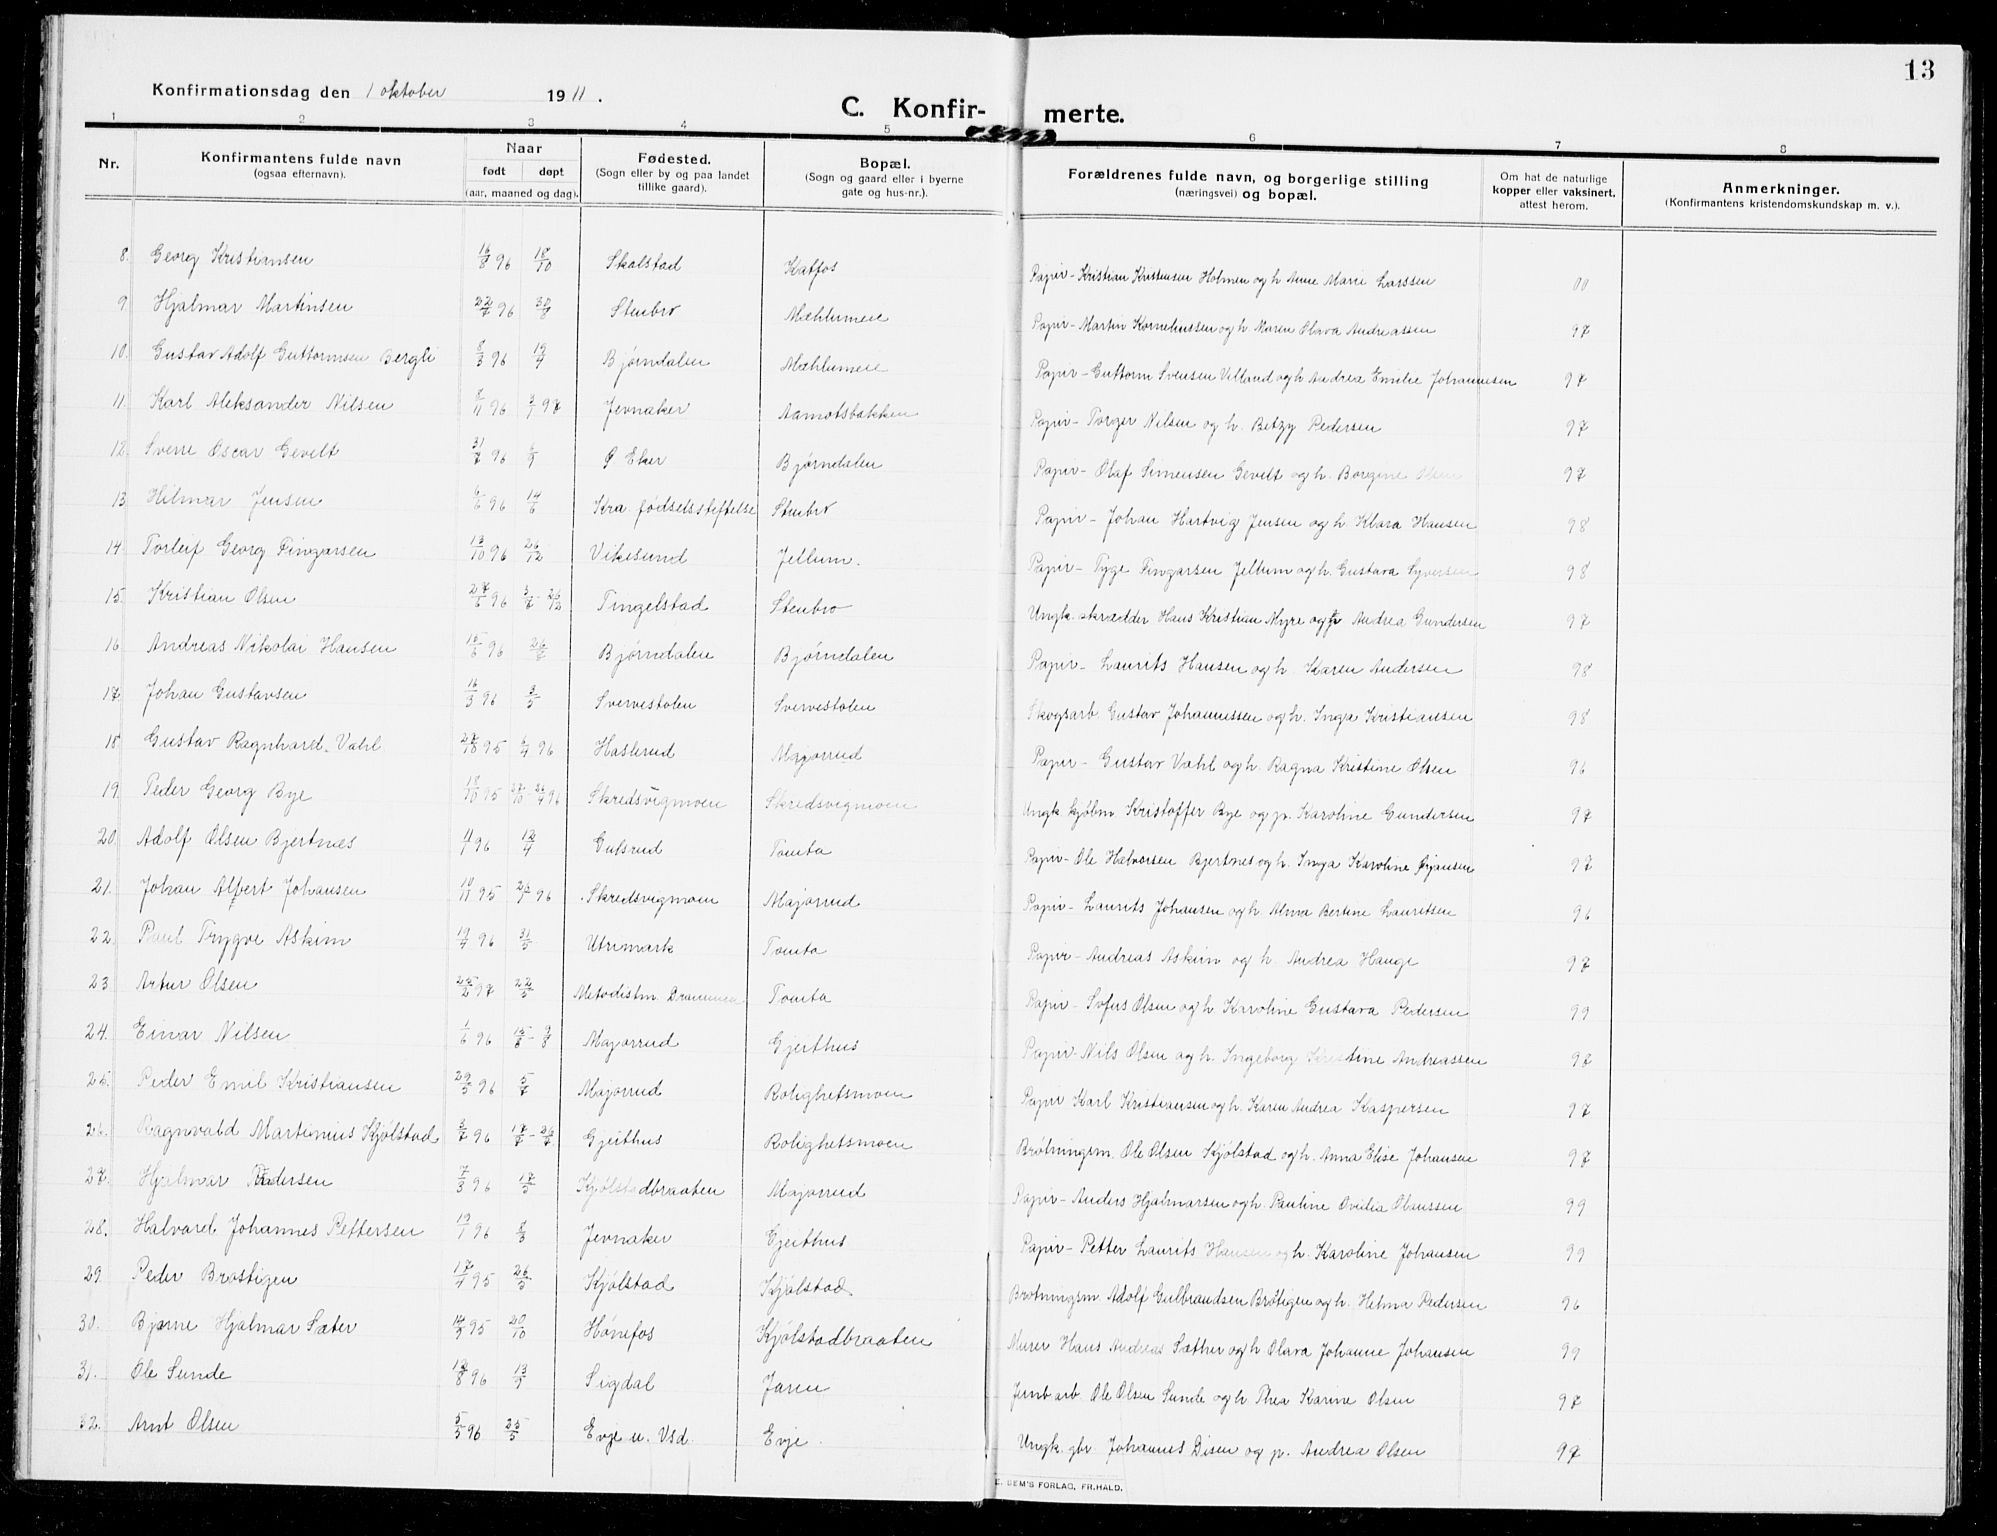 13
Konfirmationsdag den 1 oktober 1911.
C. Konfir- merte.
1 2 3 4 5 6 7 8
Nr. Konfirmantens fulde navn (ogsaa efternavn). Naar født døpt (aar, maaned og dag). Fødested. (Sogn eller by og paa landet tillike gaard). Bopæl. (Sogn og gaard eller i byerne gate og hus-nr.). Forældrenes fulde navn, og borgerlige stilling (næringsvei) og bopæl. Om hat de naturlige kopper eller vaksinert, attest herom. Anmerkninger. (Konfirmantens kristendomskundskap m. v.).
8. Georg Kristiansen 16/8 96 18/10 Skalstad Katfos Papir- Kristian Kristensen Holmen og h. Anne Marie Larssen 00
9 Hjalmar Martinsen 22/7 96 30/8 Stenbro Mæhlumeie Papir- Martin Korneliussen og h. Maren Olava Andreassen 97
10. Gustav Adolf Guttormsen Bergli 8/3 96 19/4 Bjørndalen Mæhlumeie Papir- Guttorm Svensen Villand og h. Andrea Emilie Johannesen 97
11. Karl Aleksander Nilsen 8/11 96 3/1 97 Jevnaker Aamotsbakken Papir- Torger Nilsen og h. Betzy Pedersen 97
12. Sverre Oscar Gevelt 31/7 96 6/9 Ø Eker Bjørndalen Papir- Olaf Simensen Gevelt og h. Borgine Olsen 97
13 Hilmar Jensen 6/6 96 14/6 Kra. fødselsstiftelse Stenbro Papir- Johan Hartvig Jensen og h. Klara Hansen 98
14. Torleif Georg Fingarsen 13/10 96 26/12 Vikesund Jellum. Papir- Tyge Fingarsen Jellum og h. Gustava Syversen 98
15. Kristian Olsen 27/6 96 3/7 - 26/12 Tingelstad Stenbro Ungk. skrædder Hans Kristian Myre og p Andrea Gundersen 97
16 Andreas Nikolai Hansen 15/6 96 26/7 Bjørndalen Bjørndalen Papir- Laurits Hansen og h. Karen Andersen 98
17. Johan Gustavsen 16/3 96 3/5 Svervestolen Svervestolen Skogsarb. Gustav Johannessen og h. Inga Kristiansen 98
18 Gustav Ragnhard Vahl 27/10 95 6/4 96 Haslerud Majorrud Papir- Gustav Vahl og h. Ragna Kristine Olsen 96
19. Peder Georg Bye 18/10 95 27/10 - 26/4 96 Skredsvigmoen Skredsvigmoen Ungk. kjøbm. Kristoffer Bye og p. Karoline Gundersen 97
20. Adolf Olsen Bjertnes 4/1 96 12/4 Gulsrud Tomta Papir- Ole Halvorsen Bjertnes og h. Inga Karoline Ørjansen 97
21. Johan Albert Johansen 10/11 95 26/1 96 Skredsvigmoen Majorrud Papir- Laurits Johansen og h. Alma Bertine Lauritsen 96
22. Paul Trygve Askim 19/4 96 31/5 Utrimark Tomta Papir- Andreas Askim og h. Andrea Hauge 97
23 Artur Olsen 25/2 97 22/5 Metodistm. Drammen Tomta Papir- Sofus Olsen og h. Karoline Gustava Pedersen 99
24. Einar Nilsen 1/6 96 15/6 - 9/8 Majorrud Gjeithus Papir- Nils Olsen og h. Ingeborg Kristine Andreassen 97
25. Peder Emil Kristiansen 29/5 96 5/7 Majorrud Rolighetsmoen Papir Karl Kristiansen og h. Karen Andrea Kaspersen 97
26. Ragnvald Martinius Kjølstad 3/7 96 17/7 - 26/7 Gjeithus Rolighetsmoen Brøtningsm. Ole Olsen Kjølstad og h. Anna Elise Johansen 97
27. Hjalmar Andersen 7/3 96 17/5 Kjølstadbraaten Majorrud Papir- Anders Hjalmarsen og h. Pauline Ovidia Olaussen 99
28. Halvard Johannes Pettersen 19/1 96 8/3 Jevnaker Gjeithus Papir- Petter Laurits Hansen og h. Karoline Johansen 99
29 Peder Brøstigen 17/4 95 26/5 Kjølstad Kjølstad Brøtningsm. Adolf Gulbrandsen Brøtigen og h. Helma Pedersen 96
30. Bjarne Hjalmar Sæter 14/9 95 20/10 Hønefos Kjølstadbraaten Murer Hans Andreas Sæther og h. Olava Johanne Johansen 99
31. Ole Sunde 18/8 96 13/9 Sigdal Jaren Jernb arb. Ole Olsen Sunde og h. Thea Karine Olsen 97
32. Arnt Olsen 5/5 96 25/5 Evje u. Vsd. Evje. Ungk. gbr. Johannes Disen og p. Andrea Olsen 97
E. SEM'S FORLAG, FR.HALD.